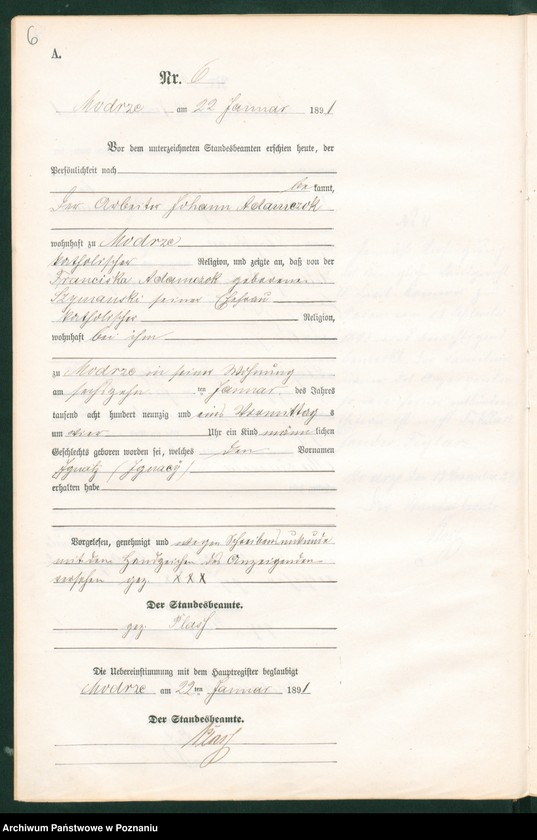 6
A.
Nr. 6
Modrze am 22 Januar 1891
Vor dem unterzeichneten Standesbeamten erschien heute, der
Persönlichkeit nach
be kannt,
Der Arbeiter Johann Adamczok
wohnhaft zu Modrze
katholischer Religion, und zeigte an, daß von der
Franciska Adamczok geborene
Szymanski seiner Ehefrau
katholischer Religion,
wohnhaft bei ihm
zu Modrze in seiner Wohnung
am sechszehn ten Januar des Jahres
tausend acht hundert neunzig und ein Vormittag s
um vier Uhr ein Kind männ lichen
Geschlechts geboren worden sei, welches den Vornamen
Ignatz (Ignacy)
erhalten habe
Vorgelesen, genehmigt und wegen Schreibensunkunde
mit dem Handzeichen des Anzeigenden
versehen gez. XXX
Der Standesbeamte.
gez.
Die Uebereinstimmung mit dem Hauptregister beglaubigt
Modrze am 22ten Januar 1891
Der Standesbeamte.
Archiwum Państwowe w Poznaniu